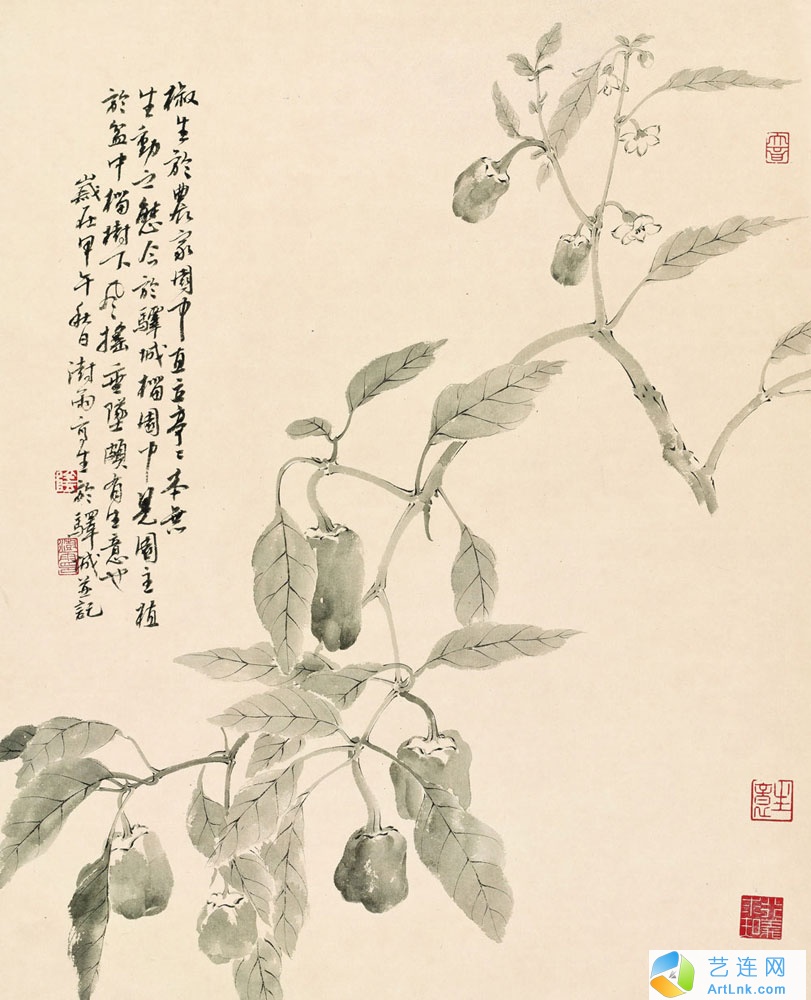 椒生於農家園中直立亭亭本無
生動之態今於驛城榴園中見園主植
於盆中榴樹下風搖垂墜頗有生意也
歲在甲午秋日澍雨寫生於驛城並記
生意
艺连网
ArtLnk.com